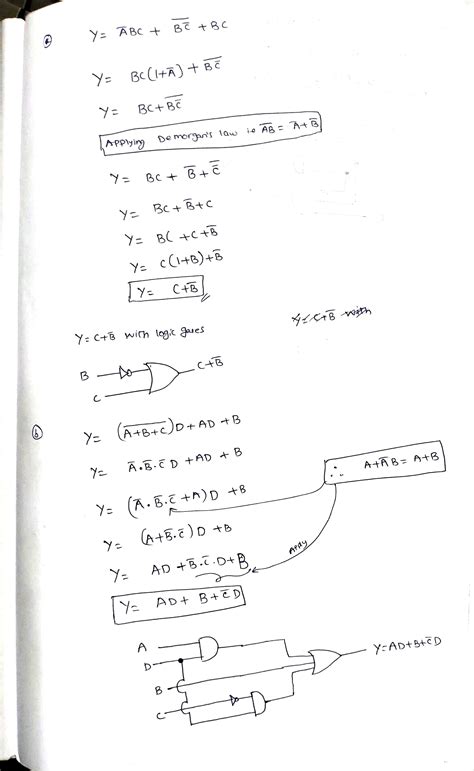 ⓐ Y = A̅BC + \overline{BC̅} + BC
Y = BC(1+A̅) + \overline{BC̅}
Y = BC + \overline{BC̅}
Applying Demorgan's law i.e \overline{AB} = A̅+B̅
Y = BC + B̅ + \overline{C̅}
Y = BC + B̅ + C
Y = BC + C + B̅
Y = C(1+B) + B̅
Y = C+B̅
Y = C+B̅ with logic gates
Y = C+B̅ with
B
C
C+B̅
ⓑ Y = (\overline{A+B+C})D + AD + B
Y = A̅.B̅.C̅ D + AD + B
∴ A+A̅B = A+B
Y = (A̅.B̅.C̅ + A)D + B
Y = (A+B̅.C̅)D + B
Apply
Y = AD + B̅.C̅.D+B
Y = AD + B + C̅D
A
D
B
C
Y=AD+B+C̅D